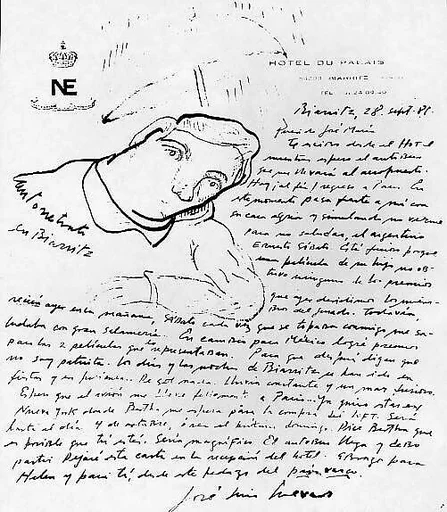 NE
HOTEL DU PALAIS
BIARRITZ
Biarritz, 28 sept. 81.
José María
Te escribo desde el Hotel
mientras espero el autobús
que me llevará al aeropuerto.
Hoy, al fin, regreso a París. En
este momento pasa frente a mí con
su cara agria y simulando no verme
para no saludar, el argentino
Ernesto Sábato. Está furioso porque
una película de su hijo no ob-
tuvo ninguno de los premios
Autorretrato
en Biarritz
que ayer decidimos los miem-
bros del jurado. Todavía,
recién ayer en la mañana, Sábato cada vez que se topaba conmigo me sa-
ludaba con gran In cambio para México logré premios
para las 2 películas que la representaban. Para que después digan que
no soy patriota. Los días y las noches de Biarritz se han ido en
fiestas y en De sol nada. Lluvia constante y un mar furioso.
Espero que el avión me lleve felizmente a París. Ya quiero estar en
Nueva York donde Bertha me espera para la compra del loft. Será
hasta el día 4 de octubre, o sea el próximo domingo. Dice Bertha que
es posible que tú estés. Sería magnífico. El autobús llega y debo
partir. Dejaré esta carta en la recepción del hotel. Abrazo para
Helen y para ti, desde este pedazo del país vasco.
José Luis Cuevas